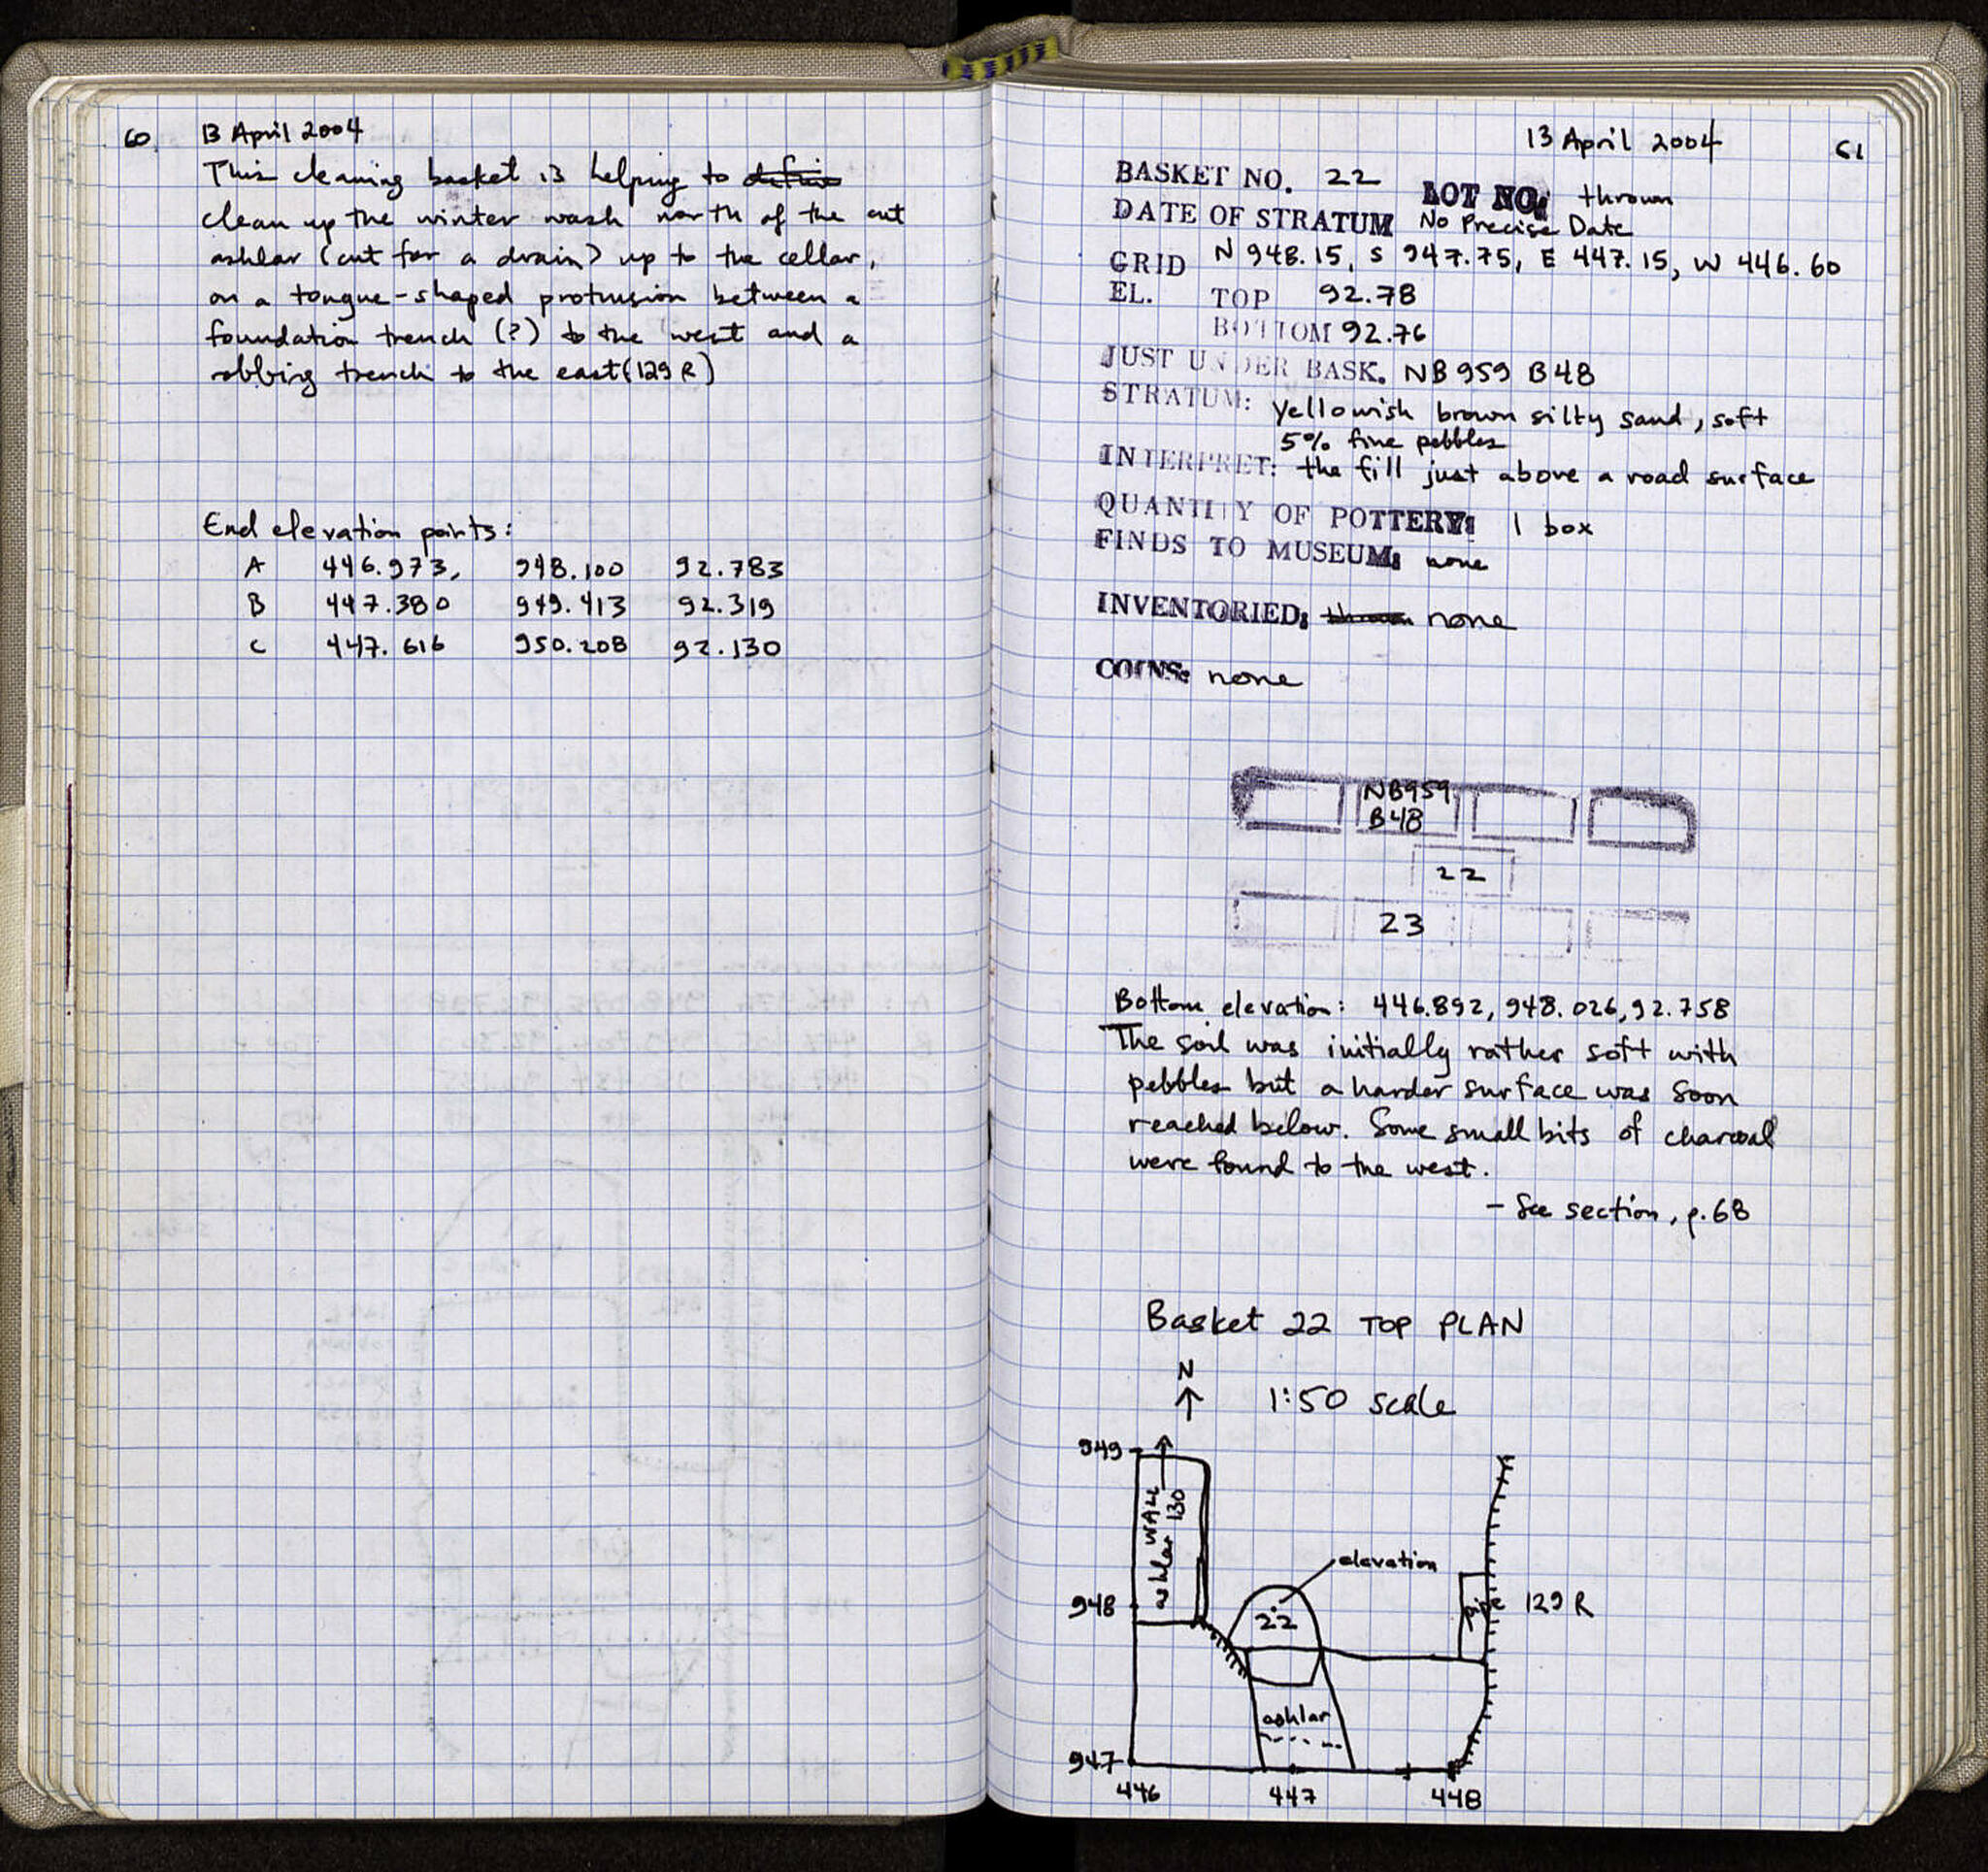 60 13 April 2004
This cleaning basket is helping to define
clean up the winter wash north of the cut
ashlar (cut for a drain) up to the cellar,
on a tongue-shaped protrusion between a
foundation trench (?) to the west and a
robbing trench to the east (129 R)
End elevation points:
A 446.973, 948.100 92.783
B 447.380 949.413 92.319
C 447.616 950.208 92.130
13 April 2004 61
BASKET NO. 22 LOT NO: thrown
DATE OF STRATUM No Precise Date
GRID N 948.15, S 947.75, E 447.15, W 446.60
EL. TOP 92.78
BOTTOM 92.76
JUST UNDER BASK. NB959 B48
STRATUM: yellowish brown silty sand, soft
5% fine pebbles
INTERPRET: the fill just above a road surface
QUANTITY OF POTTERY: 1 box
FINDS TO MUSEUM: none
INVENTORIED: none
COINS: none
NB959
B48
22
23
Bottom elevation: 446.892, 948.026, 92.758
The soil was initially rather soft with
pebbles but a harder surface was soon
reached below. Some small bits of charcoal
were found to the west.
- See section, p. 68
Basket 22 TOP PLAN
N
1:50 scale
949
ashlar WALL 130
elevation
948
22
pipe 129 R
ashlar
947
446 447 448